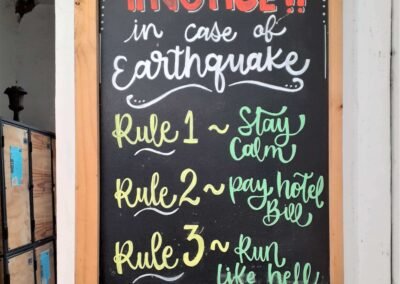 !! NOTICE !!
in case of
Earthquake
Rule 1 ~ Stay
Calm
Rule 2 ~ pay hotel
Bill
Rule 3 ~ Run
like hell